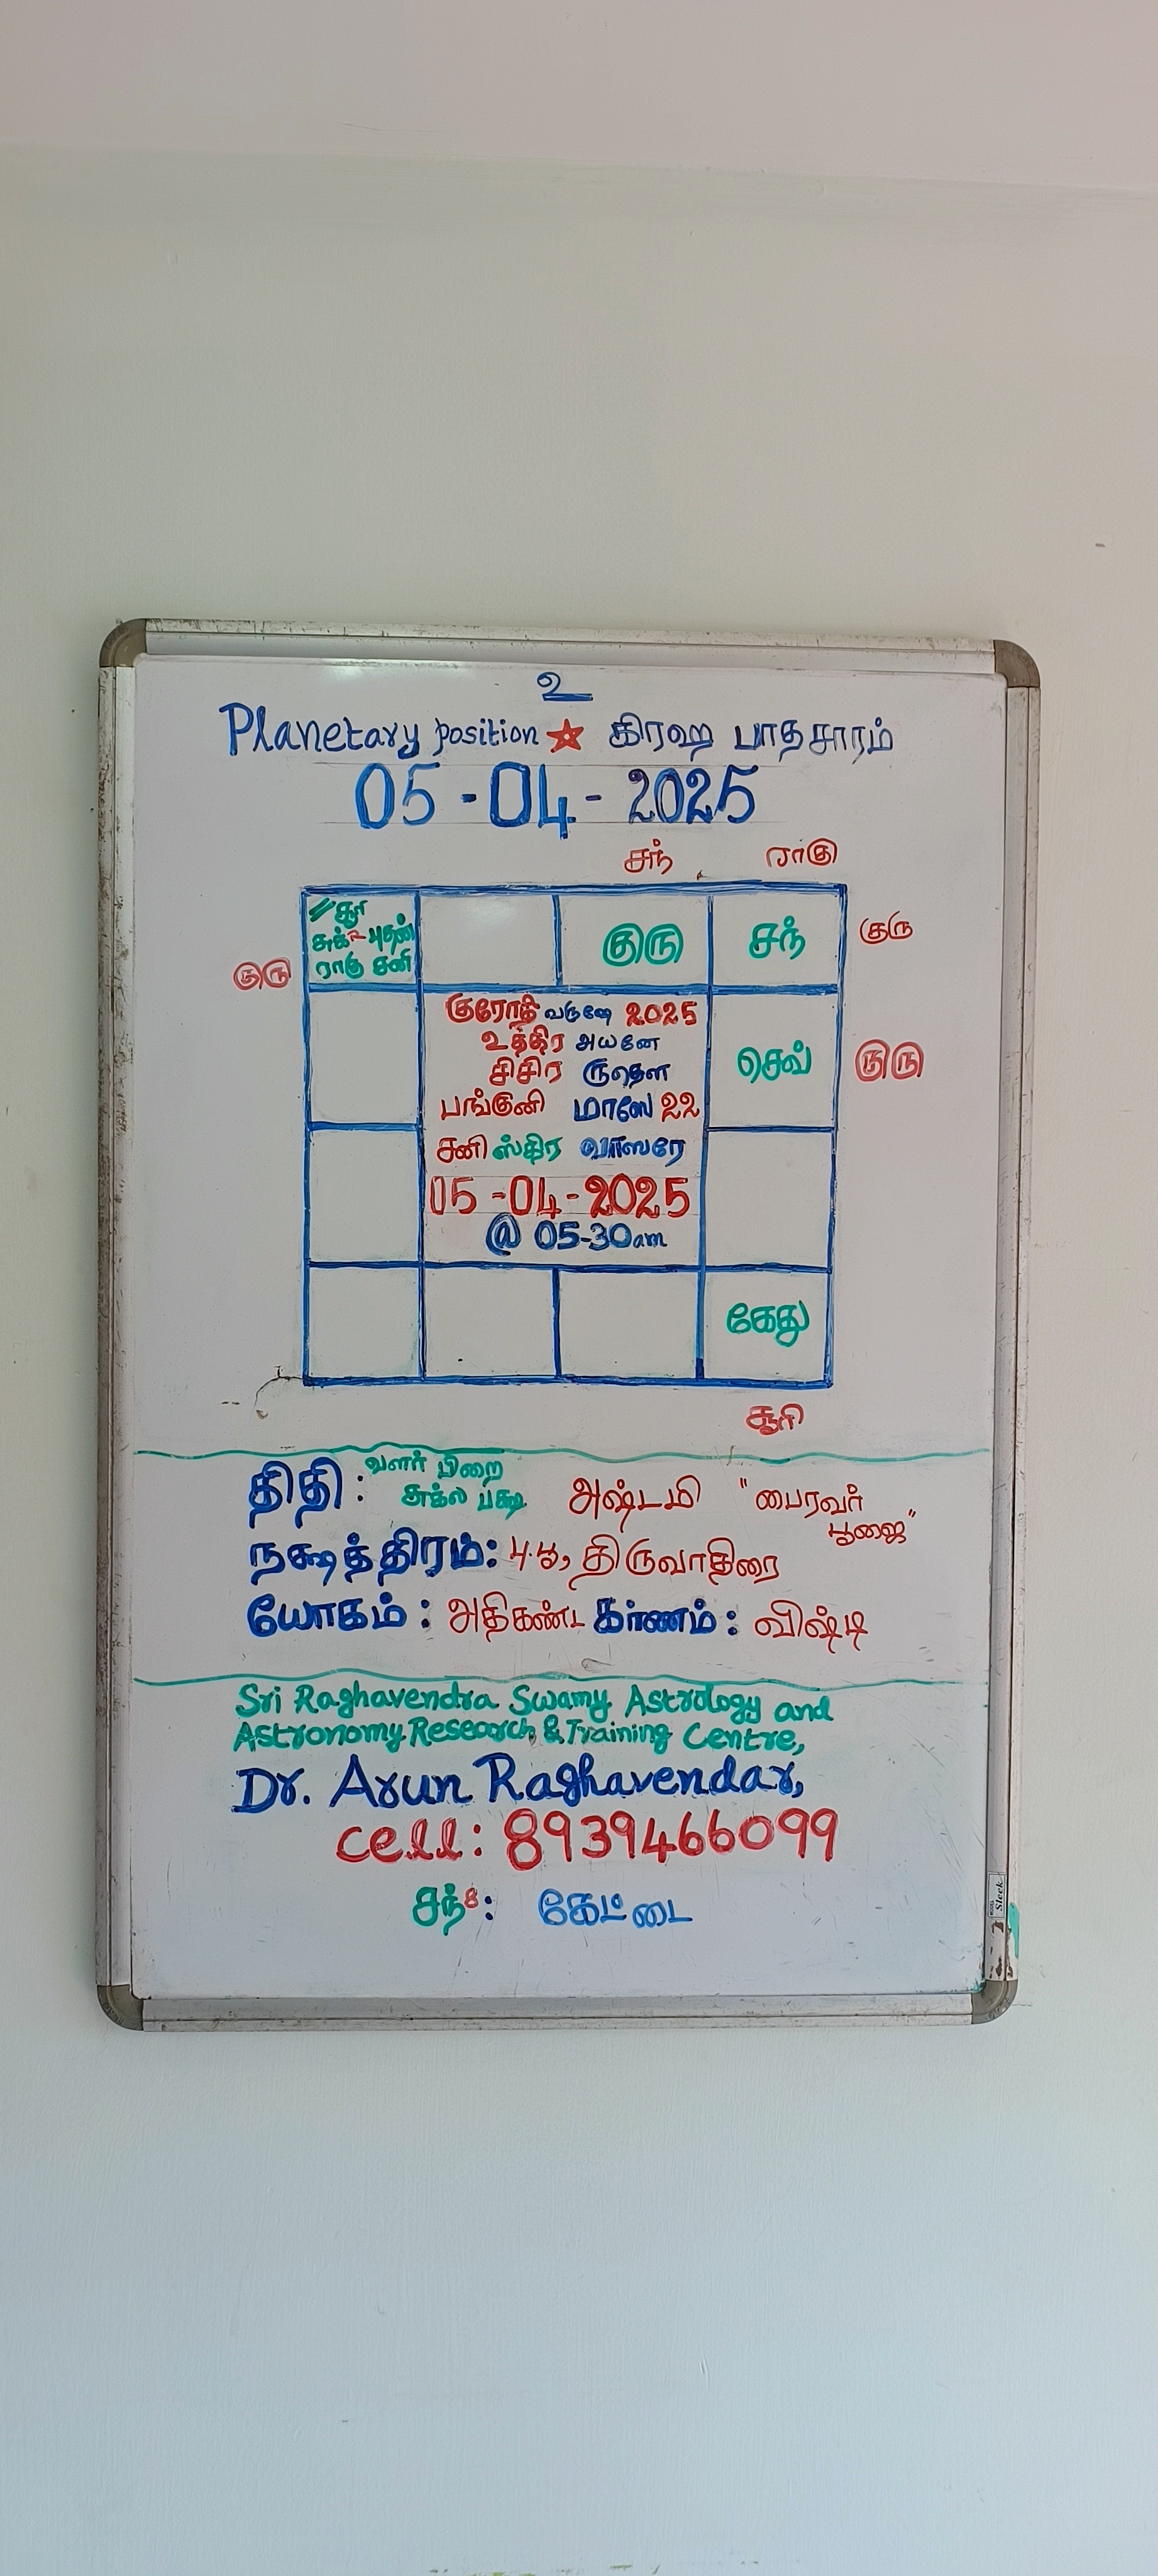 உ
Planetary position ★ கிரஹ பாதசாரம்
05-04-2025
சந் ராகு
// சூரி
சுக் புதன்
ராகு சனி
குரு சந் குரு
குரு
குரோதி வருஷே 2025
உத்திர அயனே
சிசிர ருதௌ
பங்குனி மாஸே 22
சனி ஸ்திர வாஸரே
05-04-2025
@ 05-30am
செவ் குரு
கேது
சூரி
திதி: வளர் பிறை
சுக்ல பக்ஷ அஷ்டமி "பைரவர்
பூஜை"
நக்ஷத்திரம்: திருவாதிரை
யோகம்: அதிகண்ட கர்ணம்: விஷ்டி
Sri Raghavendra Swamy Astrology and
Astronomy Research & Training Centre,
Dr. Arun Raghavendar,
cell: 8939466099
சந்8: கேட்டை
Sleek